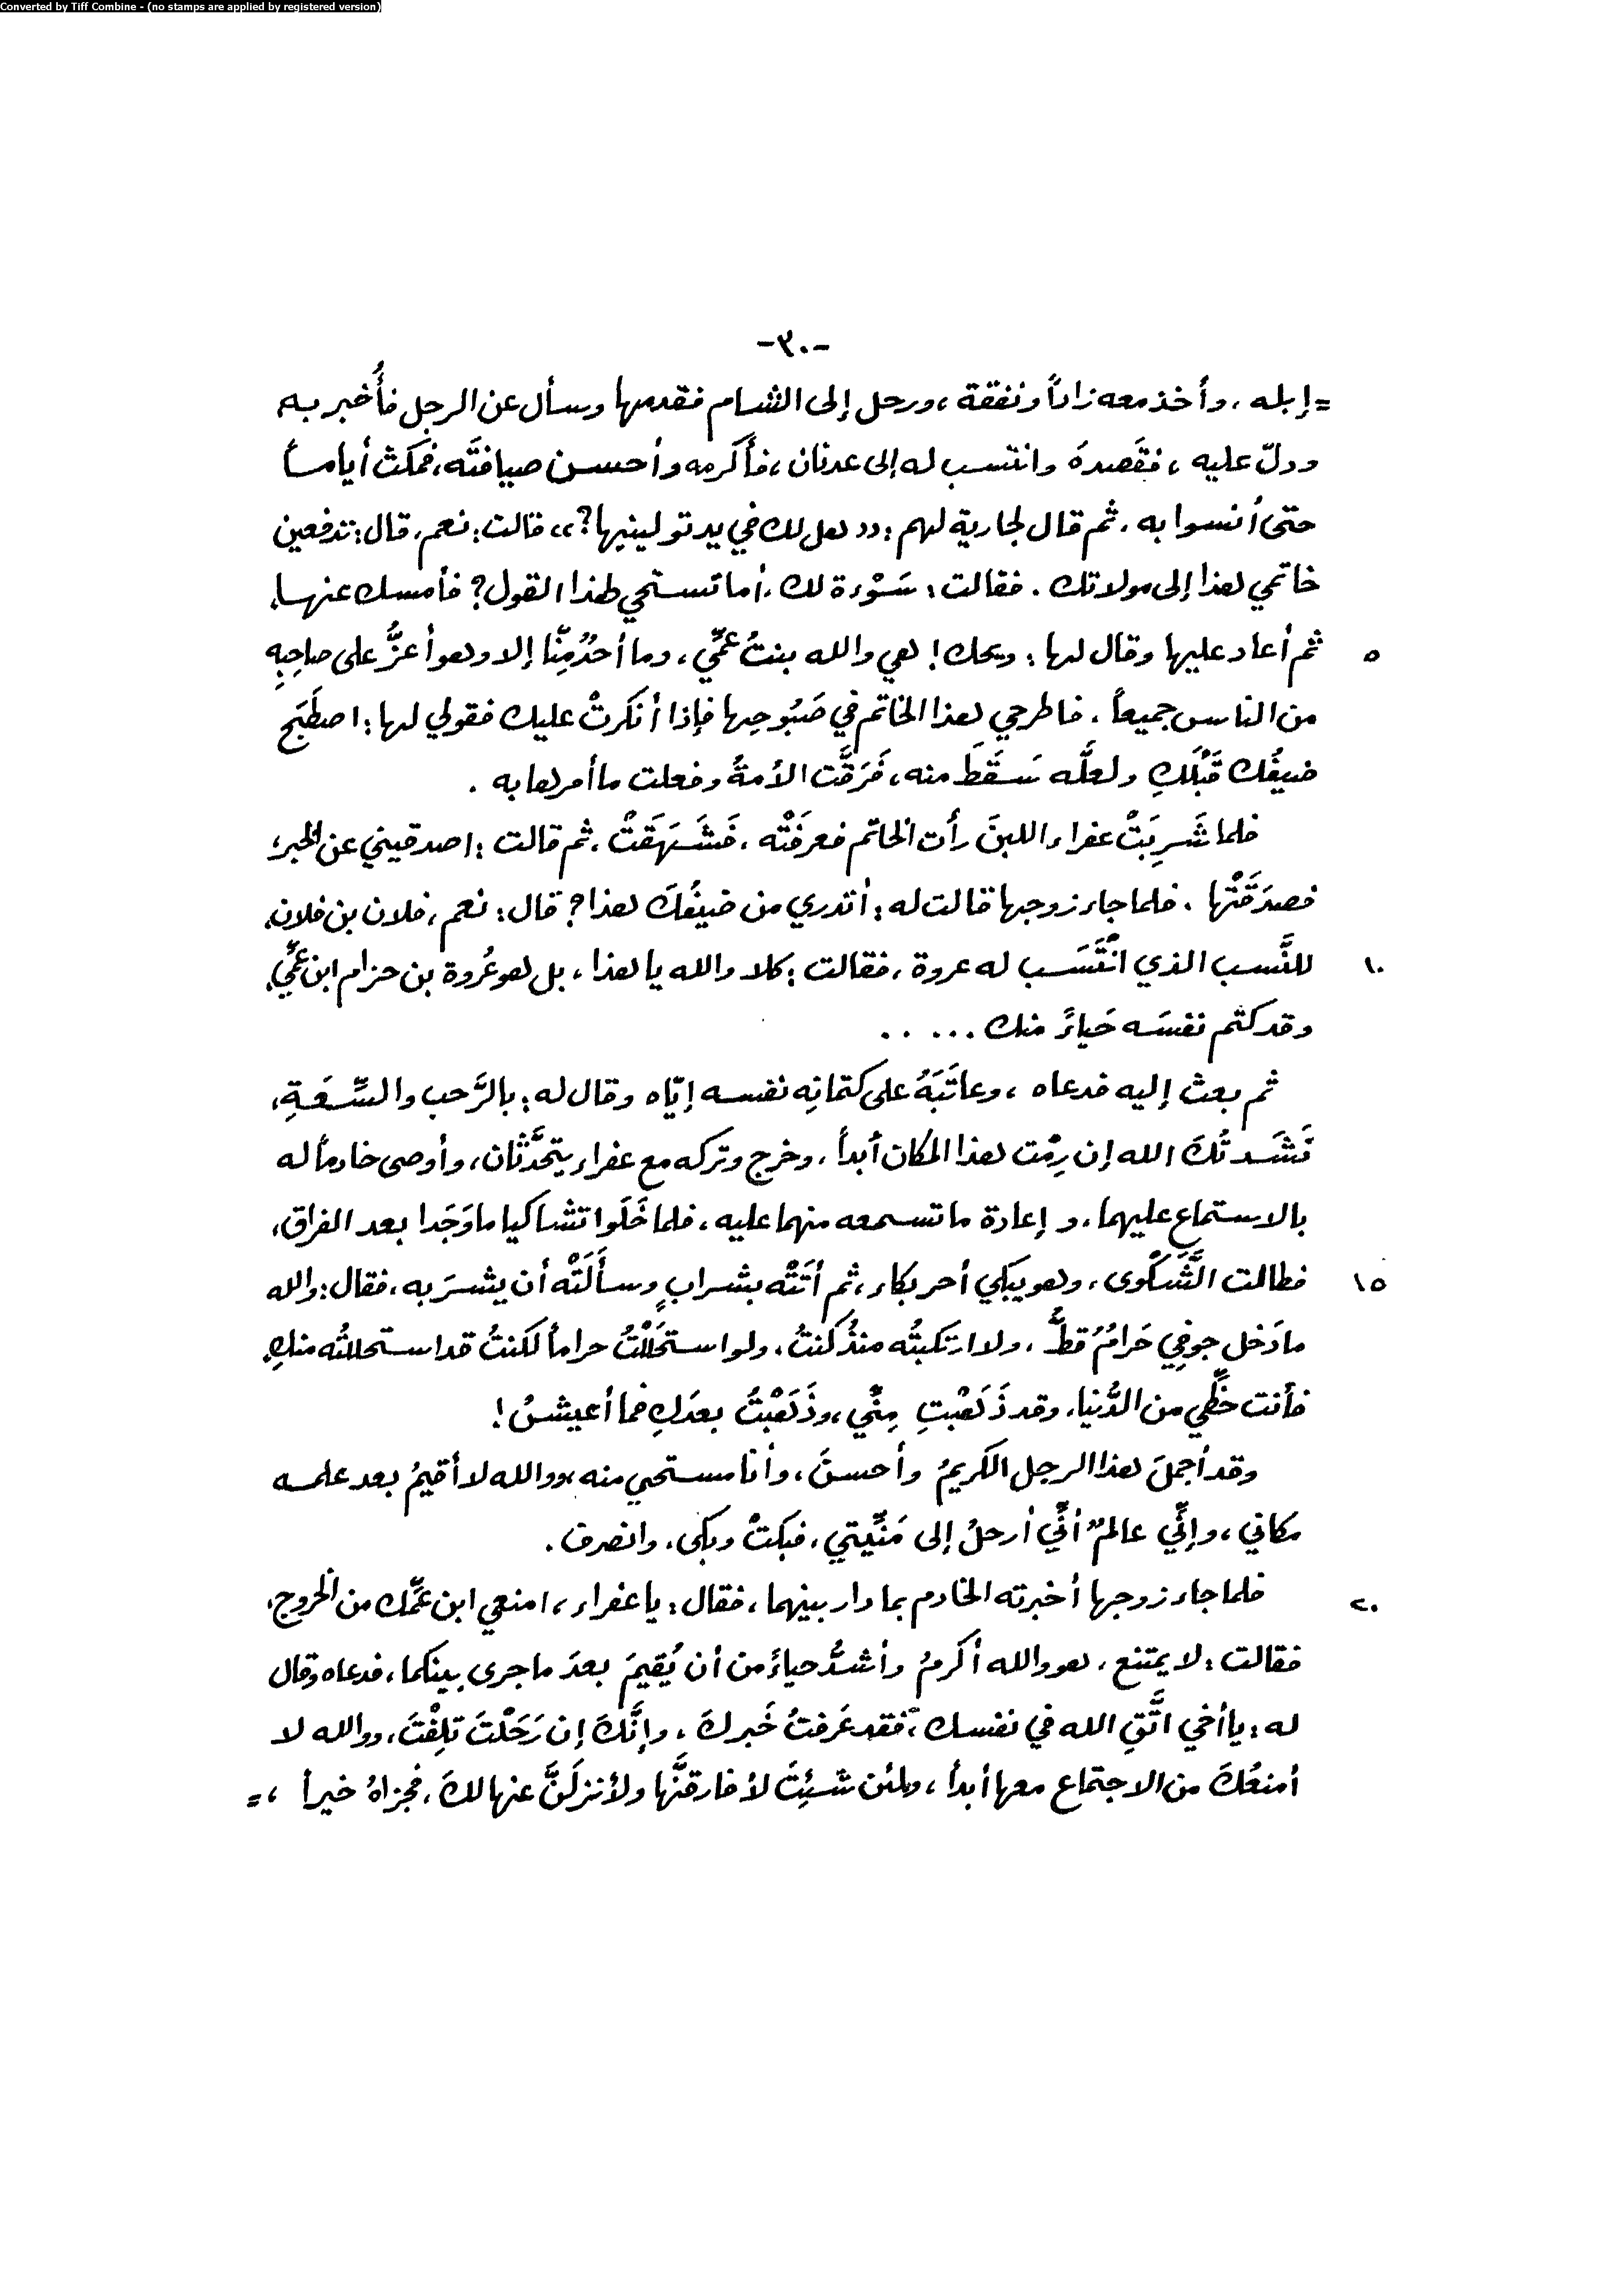 Converted by Tiff Combine - (no stamps are applied by registered version)
-٣٠-
= إبله ، وأخذ معه زاداً ونفقة ، ورحل إلى الشام فقدمها وسأل عن الرجل فأُخبر به
ودلّ عليه ، فقَصدهَ وانتسب له إلى عدنان ، فأكرمه وأحسن ضيافتَه ، فمكث أياماً
حتى أنسوا به . ثم قال لجارية لهم : (( هل لك في يد تولينيها ؟ )) قالت : نعم ، قال : تدفعين
خاتمي هذا إلى مولاتك . فقالت : سَوْءة لك ، أما تستحي لهذا القول ؟ فأمسك عنها ،
٥ ثم أعاد عليها وقال لها : ويحك ! هي والله بنتُ عمِّي ، وما أحدٌ مِنَّا إلا وهو أعزُّ على صاحِبِهِ
من الناس جميعاً . فاطرحي هذا الخاتم في صَبُوحِها فإذا أنكرتْ عليك فقولي لها : اصطَبَح
ضيفُك قَبْلَكِ ولعلَّه سَقَطَ منه ، فَرَقَّت الأمةُ وفعلت ما أمرها به .
فلما شَرِبَتْ عفراء اللبنَ رأت الخاتم فعرفَتْه ، فَشَهَقَتْ ، ثم قالت : اصدقيني عن الخبر ،
فصدَقَتْها . فلما جاء زوجها قالت له : أتدري من ضيفُكَ هذا ؟ قال : نعم ، فلان بن فلان ،
١٠ للنَّسب الذي انْتَسَب له عروة ، فقالت : كلا والله يا هذا ، بل هو عُروة بن حزام ابن عمِّي ،
وقد كتم نفسَه حَياءً منك .....
ثم بعث إليه فدعاه ، وعاتَبَهُ على كتمانِه نفسه إيّاه وقال له : بالرَّحب والسِّعَةِ ،
نَشَدتُكَ الله إن رِمْت هذا المكان أبداً ، وخرج وتركه مع عفراء يتحَدَّثان ، وأوصى خادماً له
بالاستماع عليهما ، وإعادة ما تسمعه منهما عليه ، فلما خَلَوا تشاكيا ما وَجَدا بعد الفراق ،
١٥ فطالت الشَّكْوى ، وهو يبكي أحر بكاء ، ثم أتَتْه بشرابٍ وسأَلَتْه أن يشربَ به ، فقال : والله
ما دَخل جوفِي حَرامٌ قطُّ ، ولا ارتكبتُه منذُ كنتُ ، ولو استحَلَلْتُ حراماً لكنتُ قد استحللتُه منكِ ،
فأنت حَظِّي من الدُّنيا ، وقد ذَهَبْتِ مِنِّي ، وذَهَبْتُ بعدَكِ فما أعيشُ !
وقد أجملَ هذا الرجل الكريمُ وأحسنَ ، وأنا مستحي منه ، ووالله لا أقيمُ بعد علمه
مكاني ، وإنِّي عالمٌ أنِّي أرحلُ إلى مَنِّيتي ، فبكتْ وبكى ، وانصرف .
٢٠ فلما جاء زوجها أخبرته الخادم بما دار بينهما ، فقال : يا عفراء ، امنعي ابن عمِّك من الخروج ،
فقالت : لا يمتنع ، هو والله أكرمُ وأشدُّ حياءً من أن يُقيمَ بعدَ ما جرى بينكما ، فدعاه وقال
له : يا أخي اتَّقِ الله في نفسك ، فقد عَرفتُ خَبركَ ، وإنَّكَ إن رَحَلْتَ تلِفْتَ ، ووالله لا
أمنعُكَ من الاجتماع معها أبداً ، ولئن شئِتَ لأفارقنَّها ولأنزلَنَّ عنها لكَ ، فجزاهُ خيراً ، =